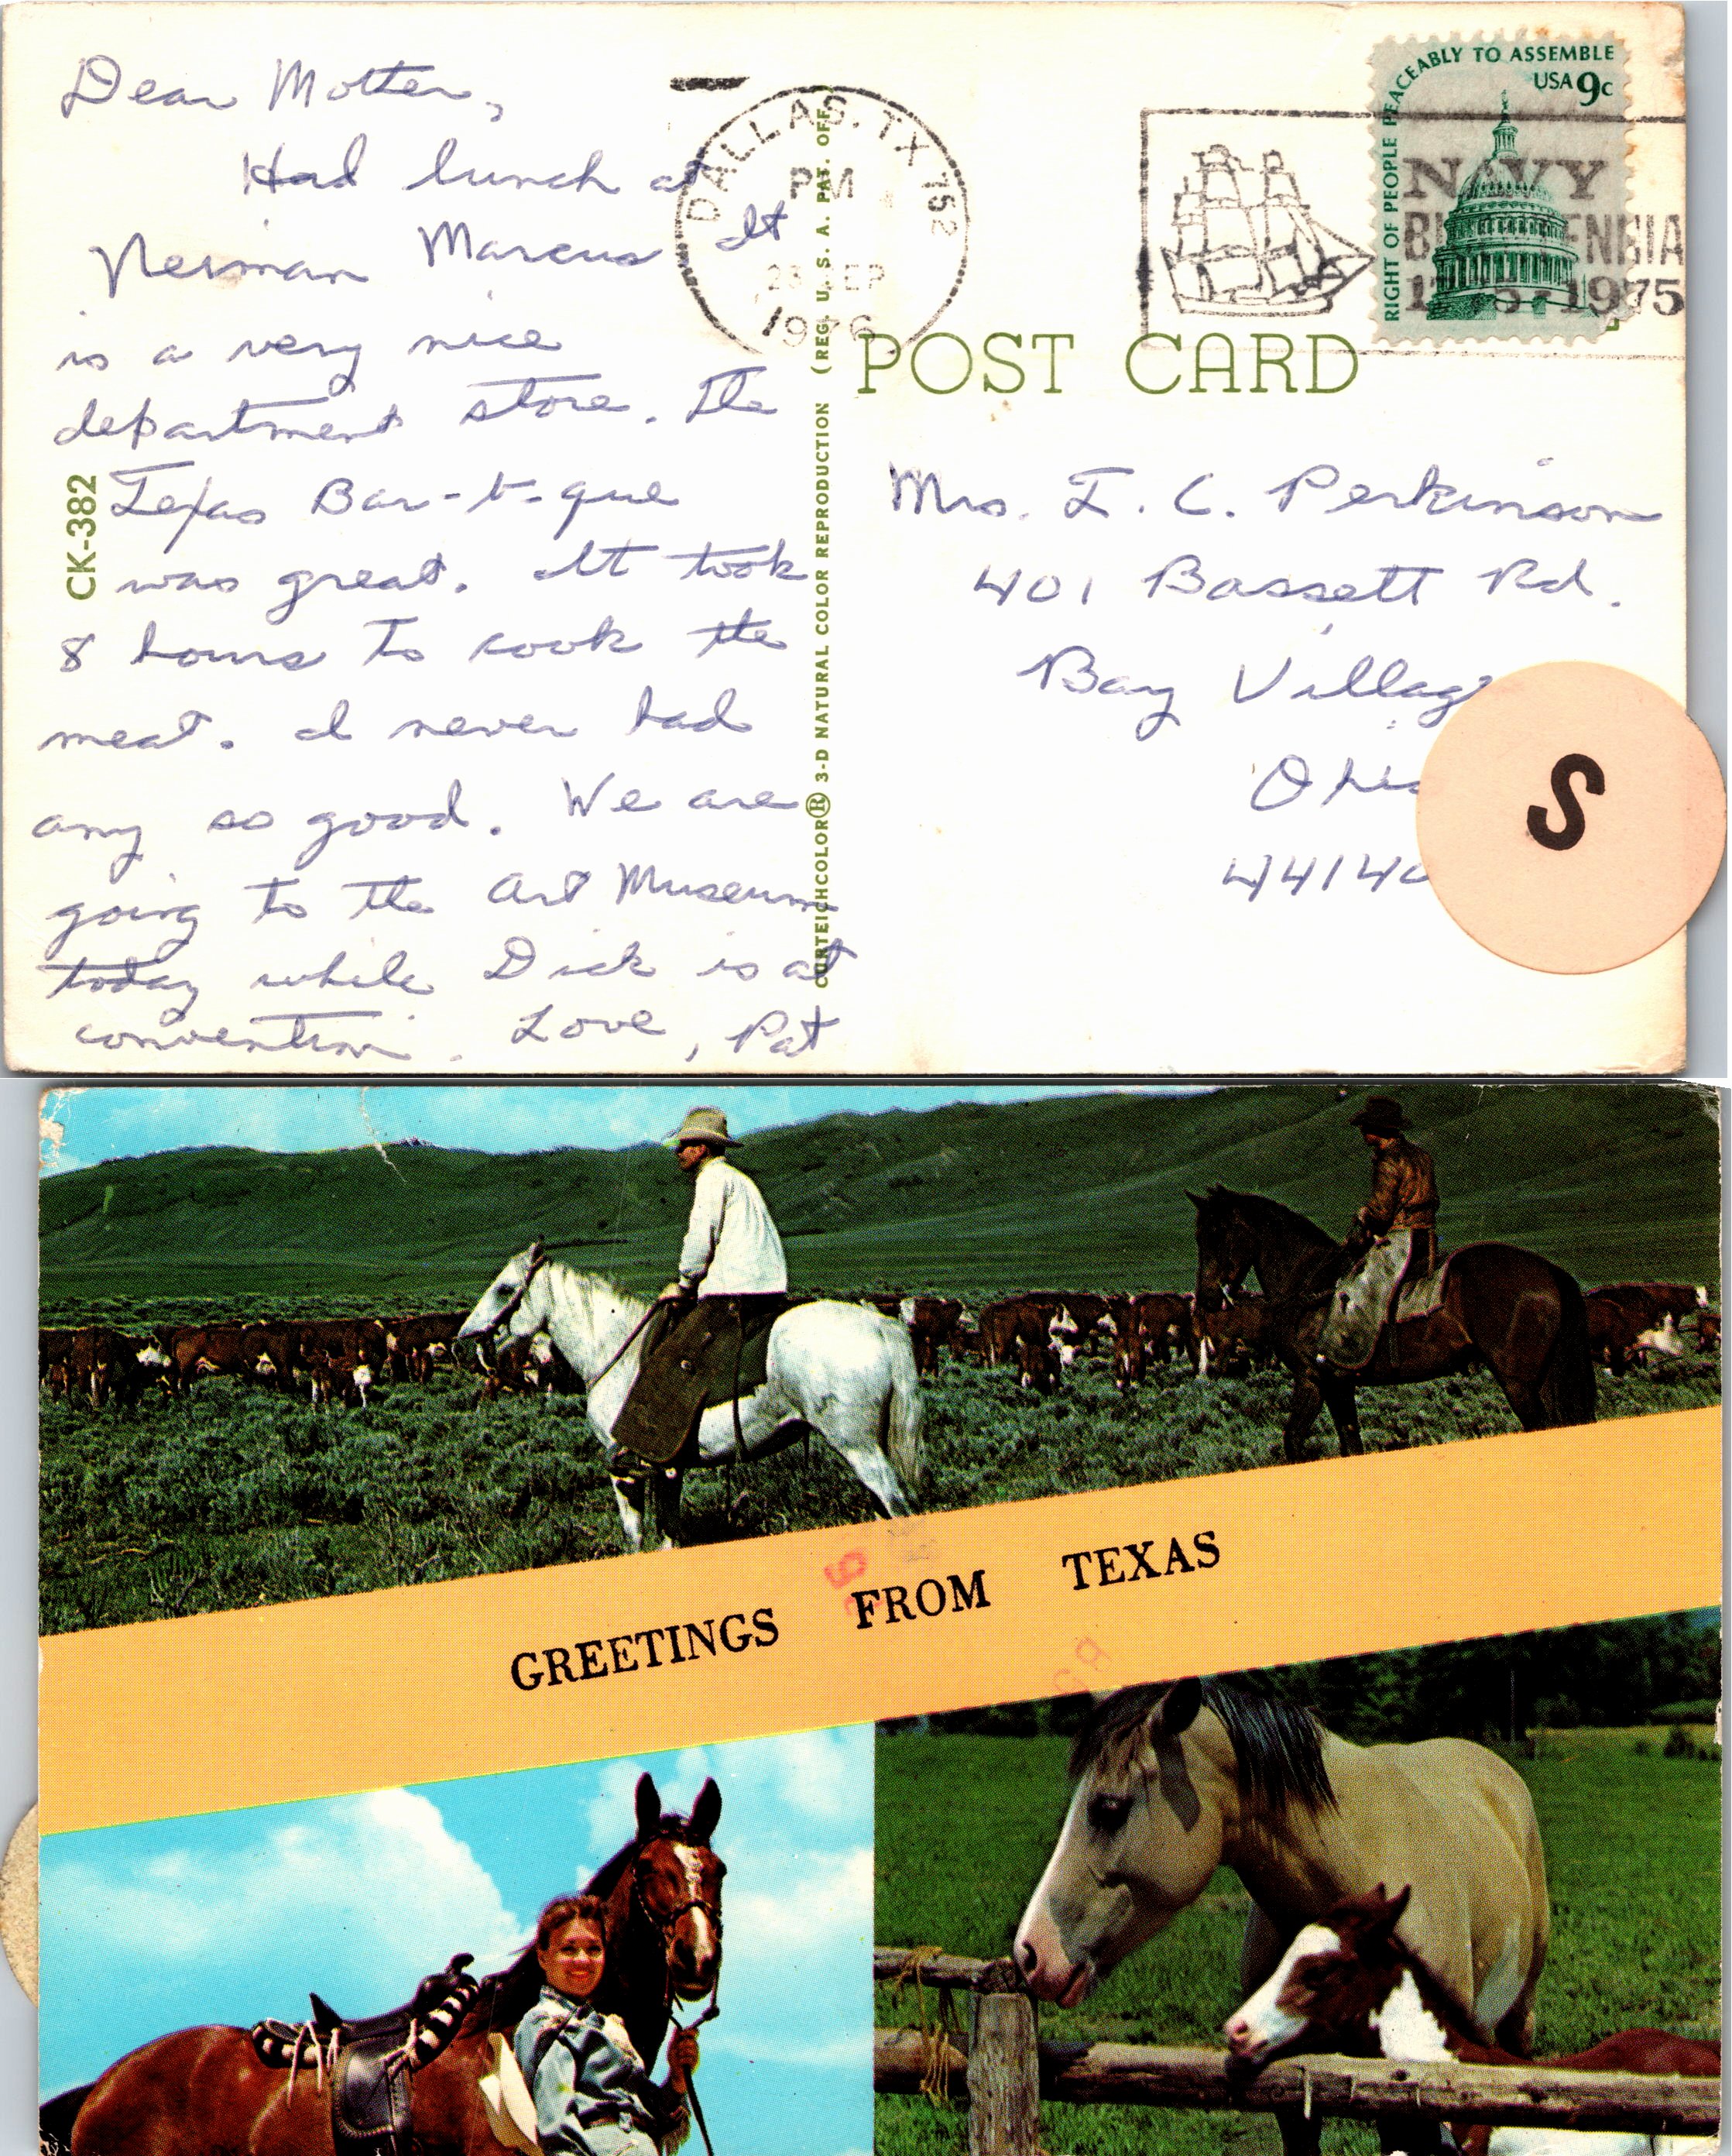 Dear Mother,
Had lunch at
Neiman Marcus It
is a very nice
department store. The
Texas Bar-b-que
was great. It took
8 hours to cook the
meat. I never had
any so good. We are
going to the Art Museum
today while Dick is at
convention. Love, Pat
CK-382
CURTEICHCOLOR® 3-D NATURAL COLOR REPRODUCTION (REG. U.S.A. PAT. OFF.
DALLAS, TX 752
PM
28 SEP
1976
RIGHT OF PEOPLE PEACEABLY TO ASSEMBLE
USA 9c
NAVY
1975
POST CARD
Mrs. I. C. Perkinson
401 Bassett Rd.
Bay Villag
Ohio
44140
S
GREETINGS FROM TEXAS